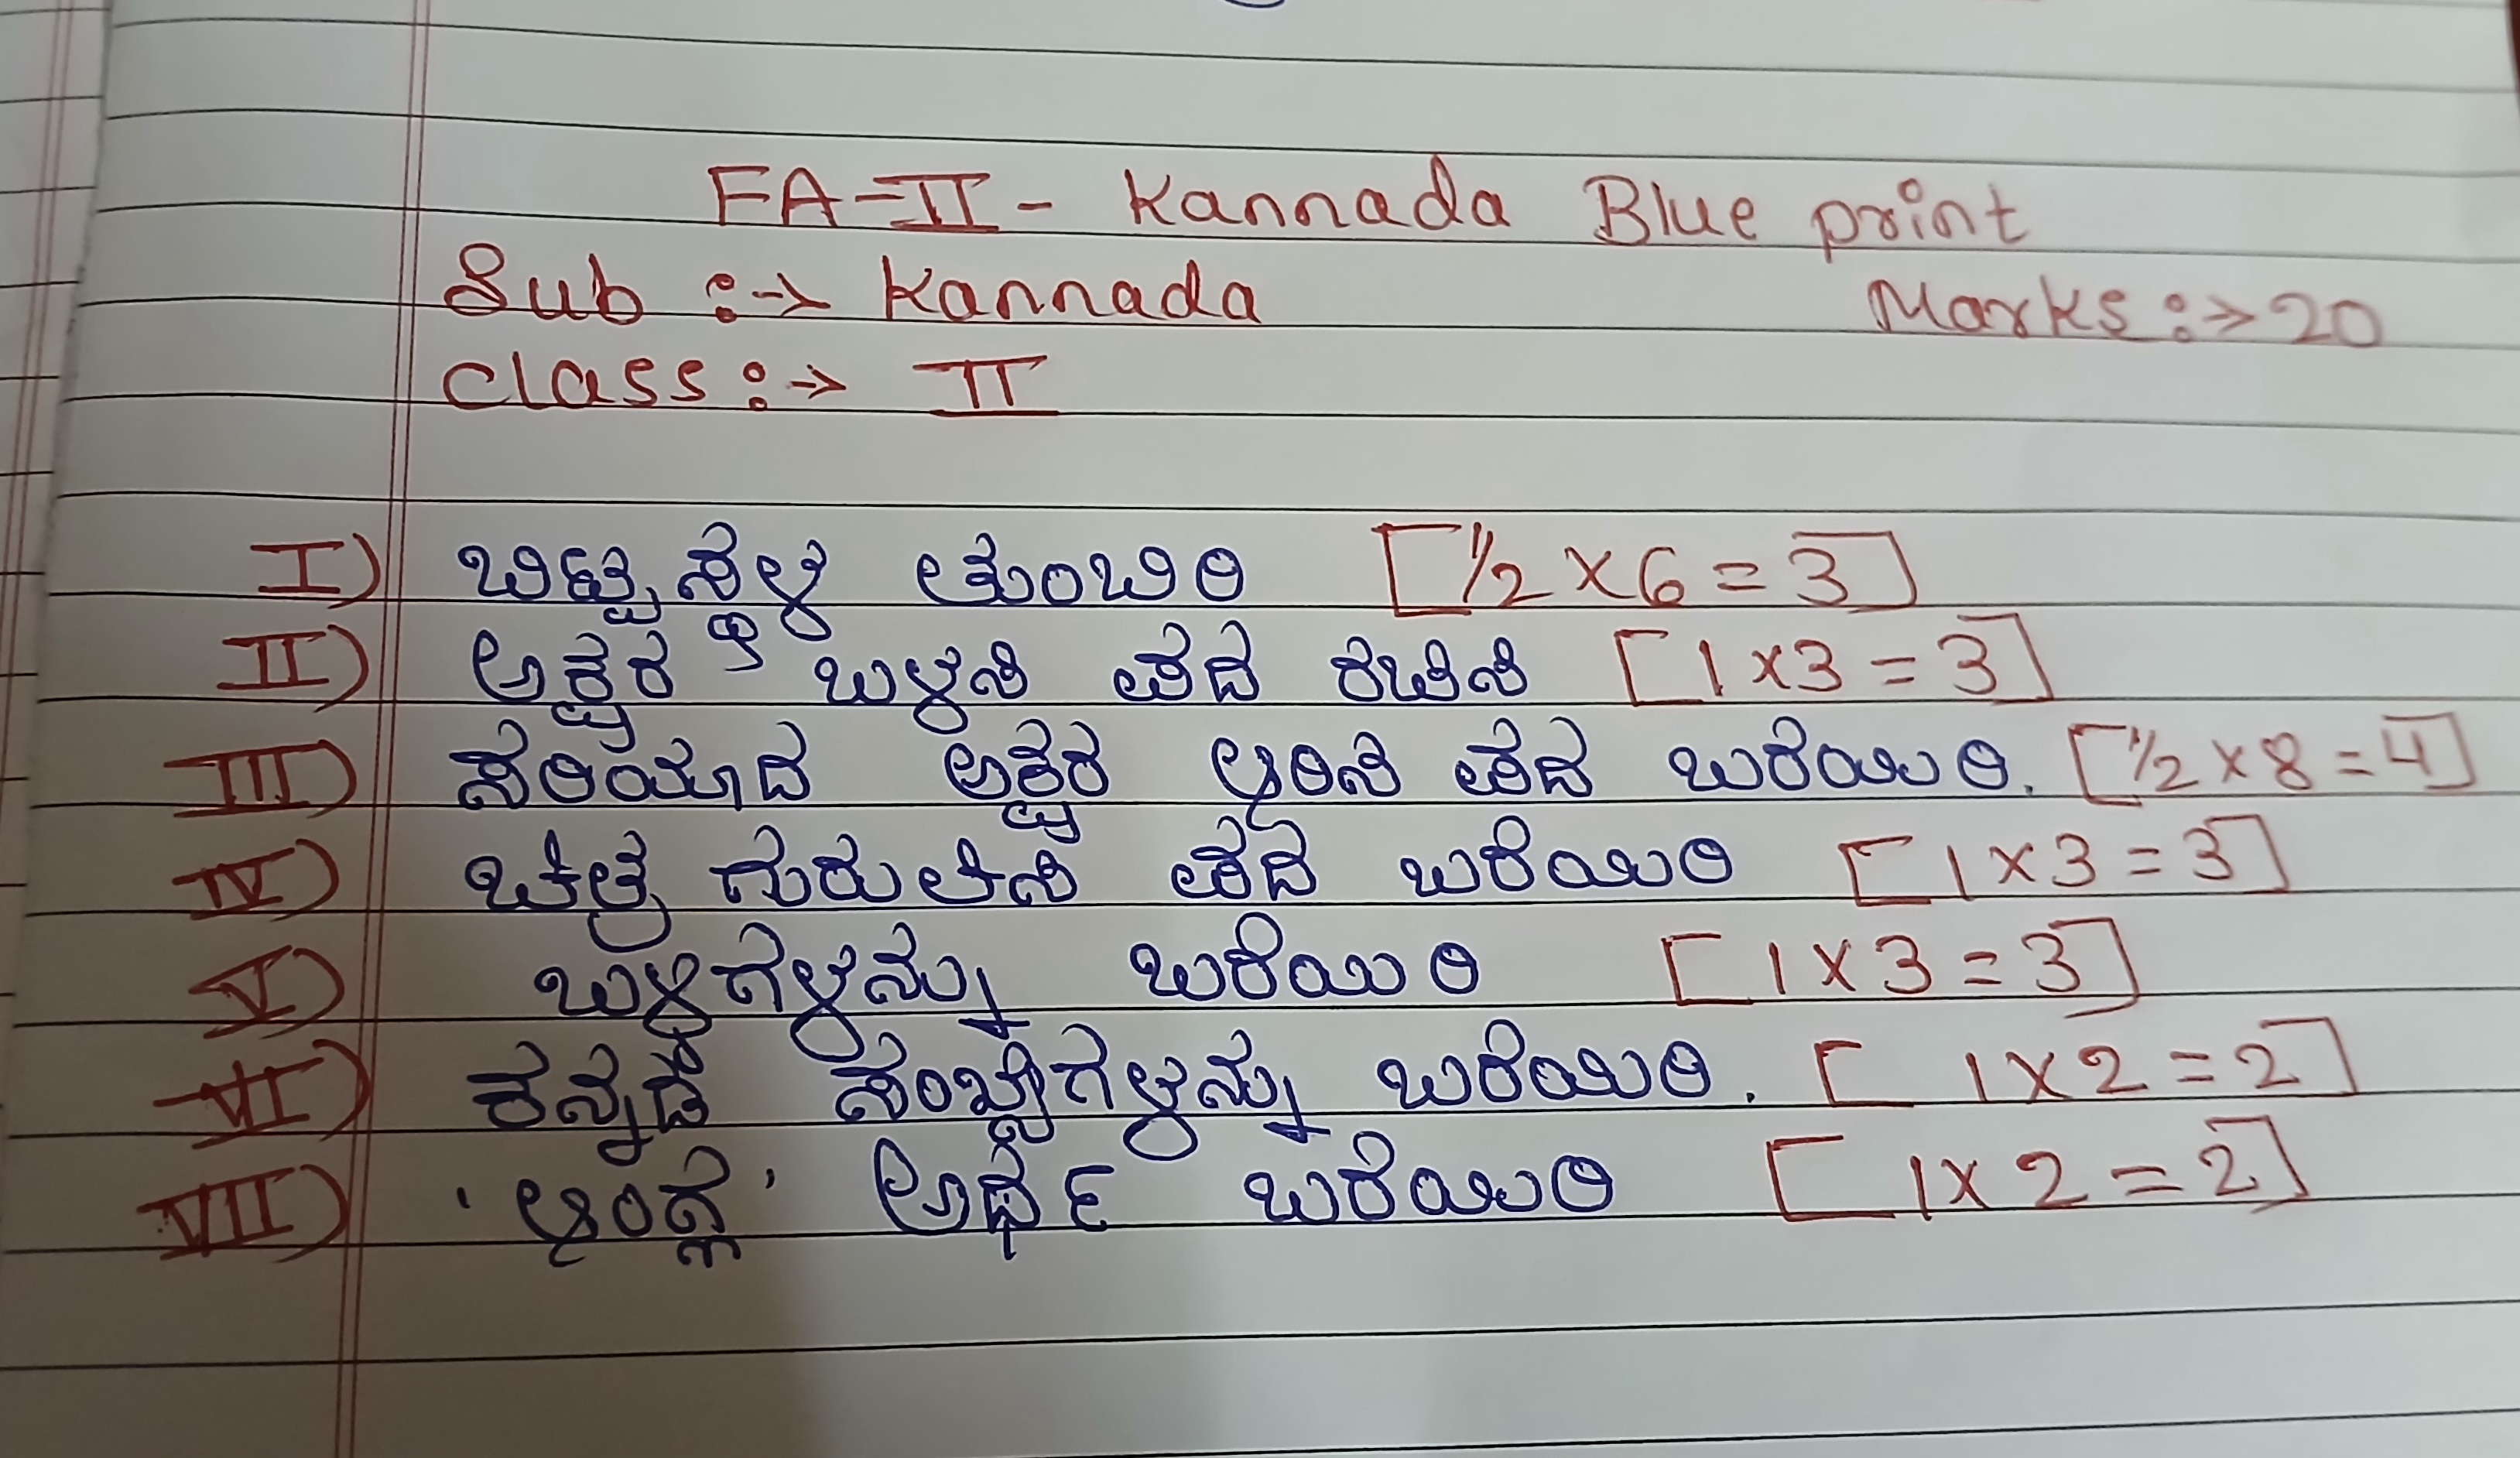 FA-II - Kannada Blue print
Sub :-> Kannada Marks :-> 20
Class :-> II
I) ಬಿಟ್ಟ ಸ್ಥಳ ತುಂಬಿರಿ [1/2 x 6 = 3]
II) ಅಕ್ಷರ ಬಳಸಿ ಪದ ರಚಿಸಿ [1 x 3 = 3]
III) ಸರಿಯಾದ ಅಕ್ಷರ ಆರಿಸಿ ಪದ ಬರೆಯಿರಿ. [1/2 x 8 = 4]
IV) ಚಿತ್ರ ಗುರುತಿಸಿ ಪದ ಬರೆಯಿರಿ [1 x 3 = 3]
V) ಬಳ್ಳಿಗಳನ್ನು ಬರೆಯಿರಿ [1 x 3 = 3]
VI) ಕನ್ನಡ ಸಂಖ್ಯೆಗಳನ್ನು ಬರೆಯಿರಿ. [1 x 2 = 2]
VII) 'ಆಂಗ್ಲ' ಅರ್ಥ ಬರೆಯಿರಿ [1 x 2 = 2]